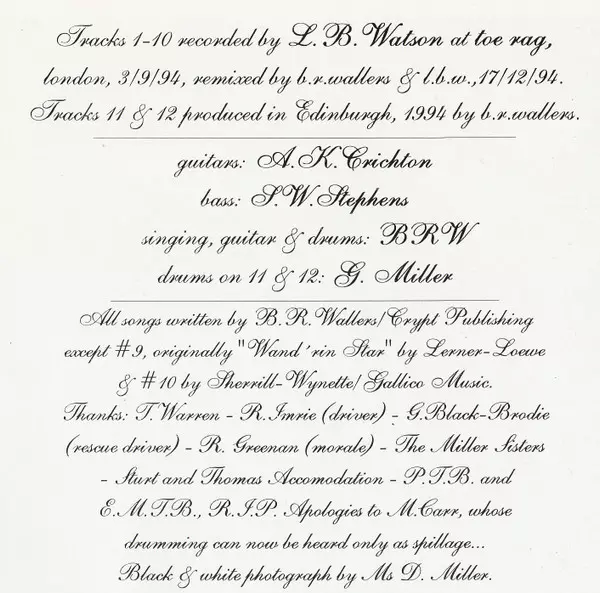 Tracks 1-10 recorded by L. B. Watson at toe rag,
london, 3/9/94, remixed by b.r.wallers & l.b.w.,17/12/94.
Tracks 11 & 12 produced in Edinburgh, 1994 by b.r.wallers.
guitars: A.K.Crichton
bass: S.W.Stephens
singing, guitar & drums: BRW
drums on 11 & 12: G. Miller
All songs written by B.R.Wallers/Crypt Publishing
except #9, originally "Wand'rin Star" by Lerner-Loewe
& #10 by Sherrill-Wynette/Gallico Music.
Thanks: T.Warren - R.Imrie (driver) - G.Black-Brodie
(rescue driver) - R. Greenan (morale) - The Miller Sisters
- Sturt and Thomas Accomodation - P.T.B. and
E.M.T.B., R.I.P. Apologies to M.Carr, whose
drumming can now be heard only as spillage...
Black & white photograph by Ms D. Miller.